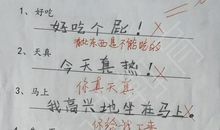 1、好吃
好吃个屁！
此东西是不能吃的
2、天真
今天真热！
你真天真
3、马上
我高兴地坐在马上。
你给我下来